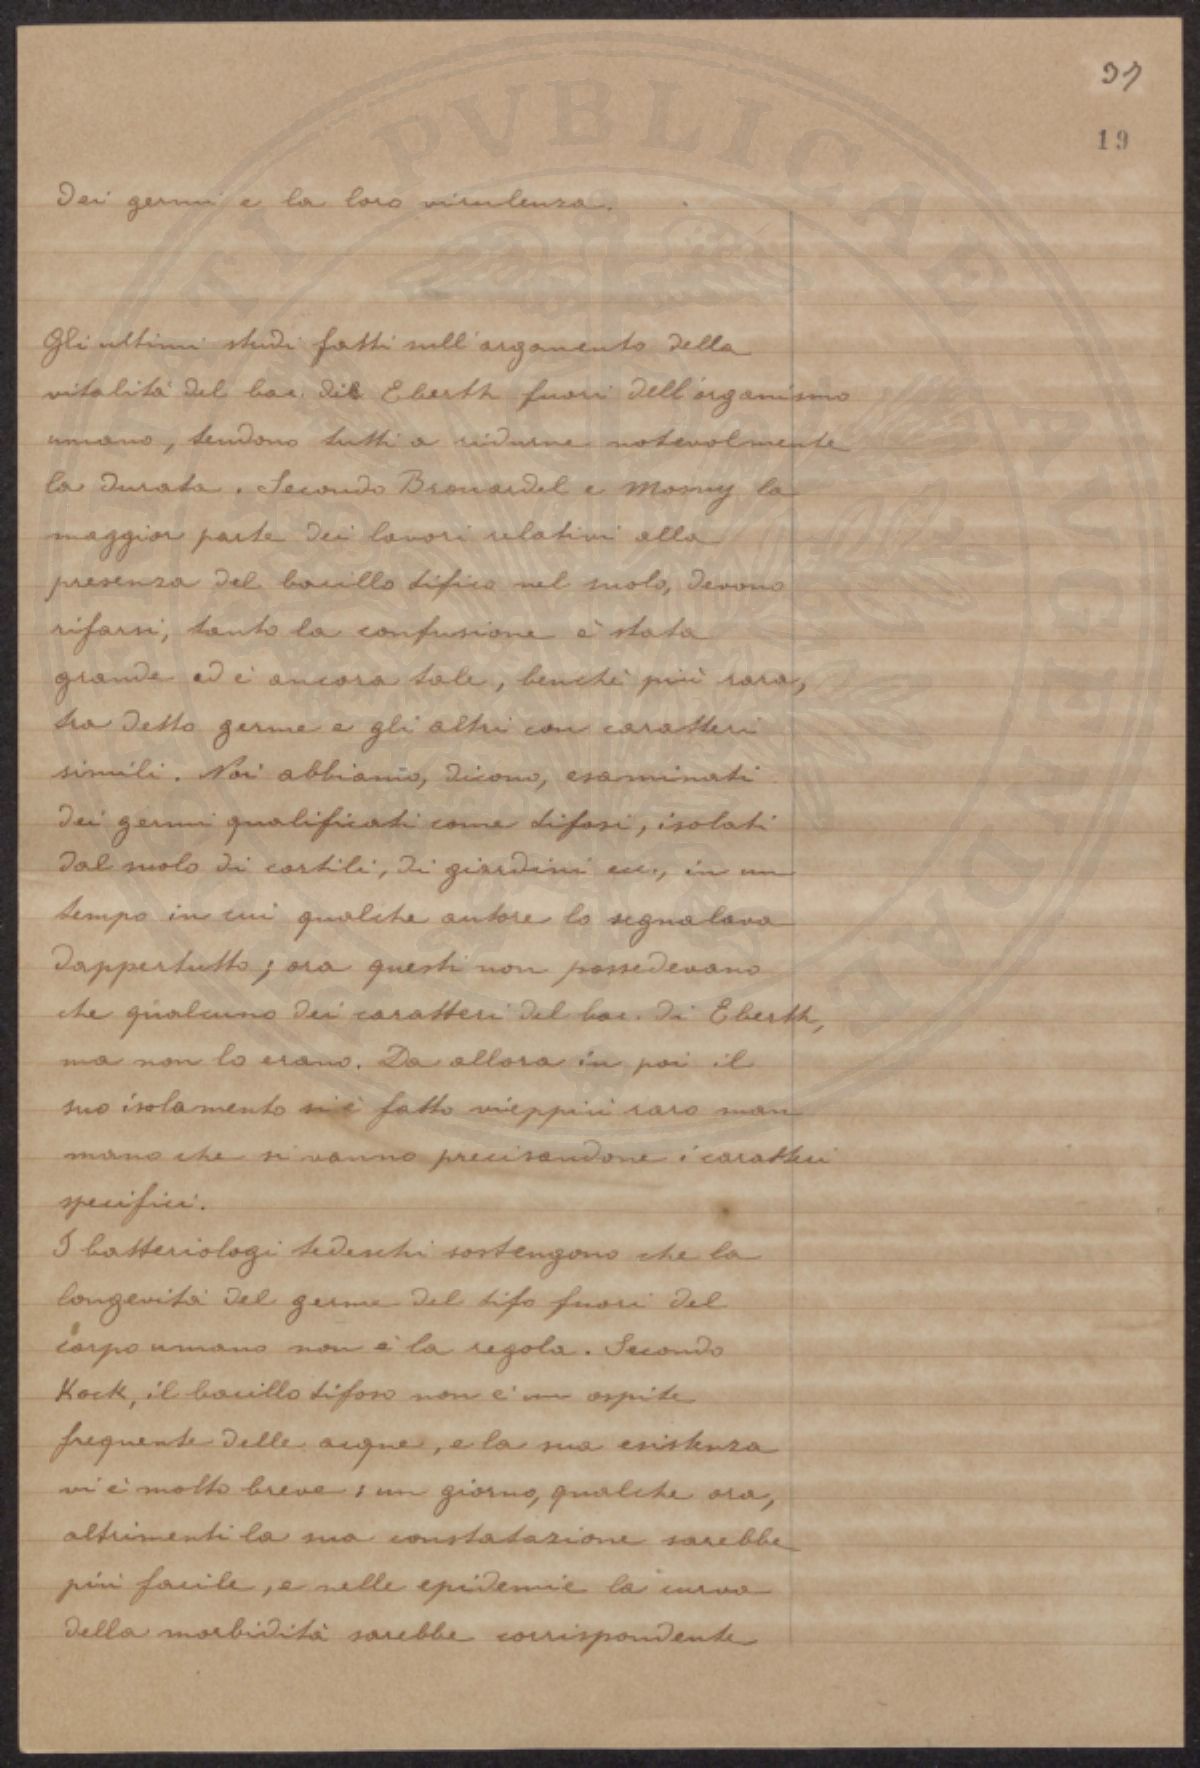 37
19
dei germi e la loro virulenza.
Gli ultimi studi fatti sull'argomento della
vitalità del bac. di Eberth fuori dell'organismo
umano, tendono tutti a ridurne notevolmente
la durata. Secondo Brouardel e Mosny la
maggior parte dei lavori relativi alla
presenza del bacillo tifico nel suolo, devono
rifarsi, tanto la confusione è stata
grande ed è ancora tale, benchè più rara,
tra detto germe e gli altri con caratteri
simili. Noi abbiamo, dicono, esaminati
dei germi qualificati come tifosi, isolati
dal suolo di cortili, di giardini ecc., in un
tempo in cui qualche autore lo segnalava
dappertutto; ora questi non possedevano
che qualcuno dei caratteri del bac. di Eberth,
ma non lo erano. Da allora in poi il
suo isolamento si è fatto vieppiù raro man
mano che si vanno precisandone i caratteri
specifici.
I batteriologi tedeschi sostengono che la
longevità del germe del tifo fuori del
corpo umano non è la regola. Secondo
Kock, il bacillo tifoso non è un ospite
frequente delle acque, e la sua esistenza
vi è molto breve: un giorno, qualche ora,
altrimenti la sua constatazione sarebbe
più facile, e nelle epidemie la curva
della morbidità sarebbe corrispondente
PUBLICAE